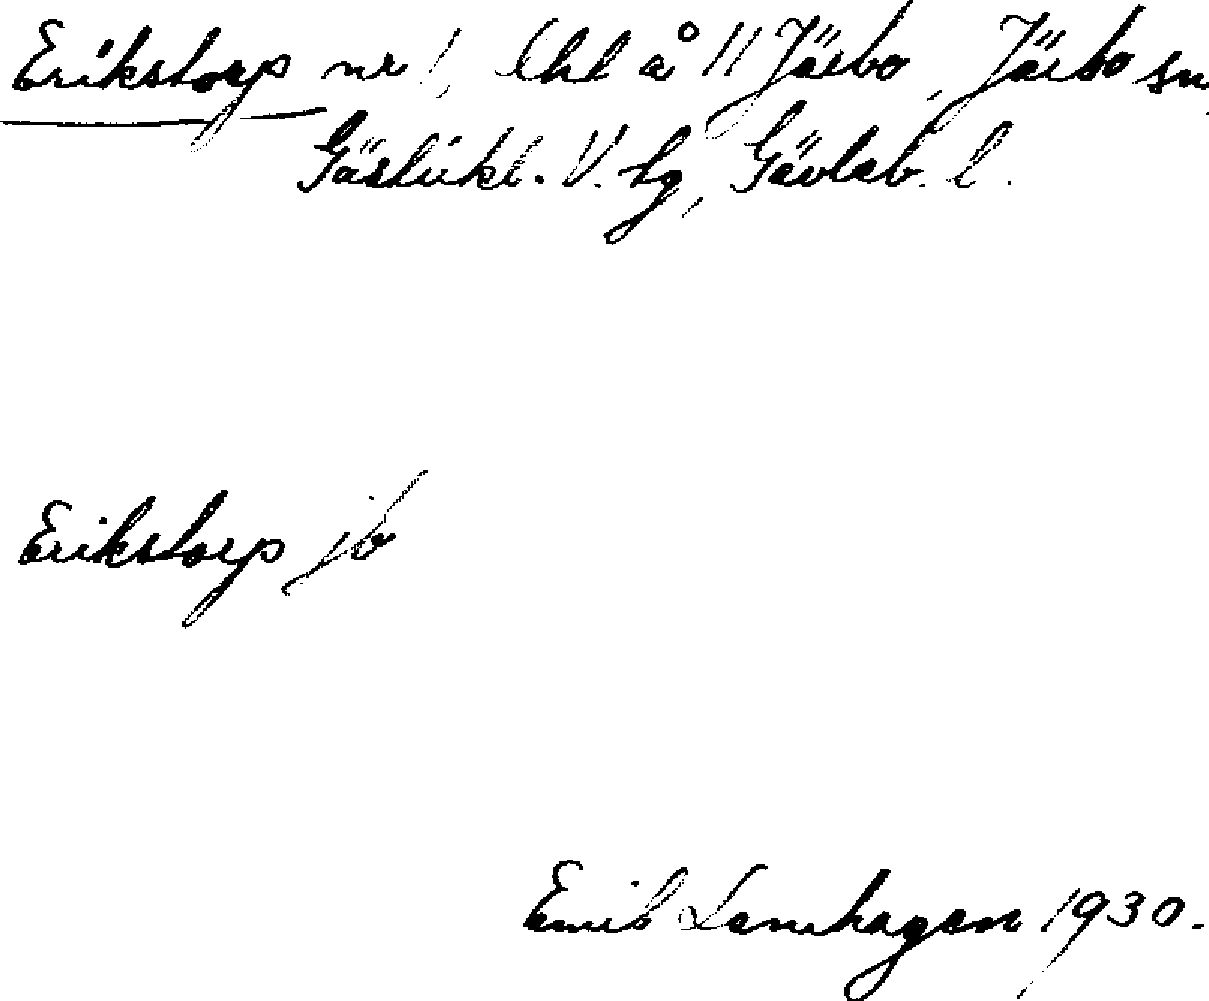 Erikstorp nr 1, lht å 11 Järbo, Järbo sn,
Gästrikl. V. hg, Gävleb. l.
Erikstorp jb
Emil Lennhagen 1930.